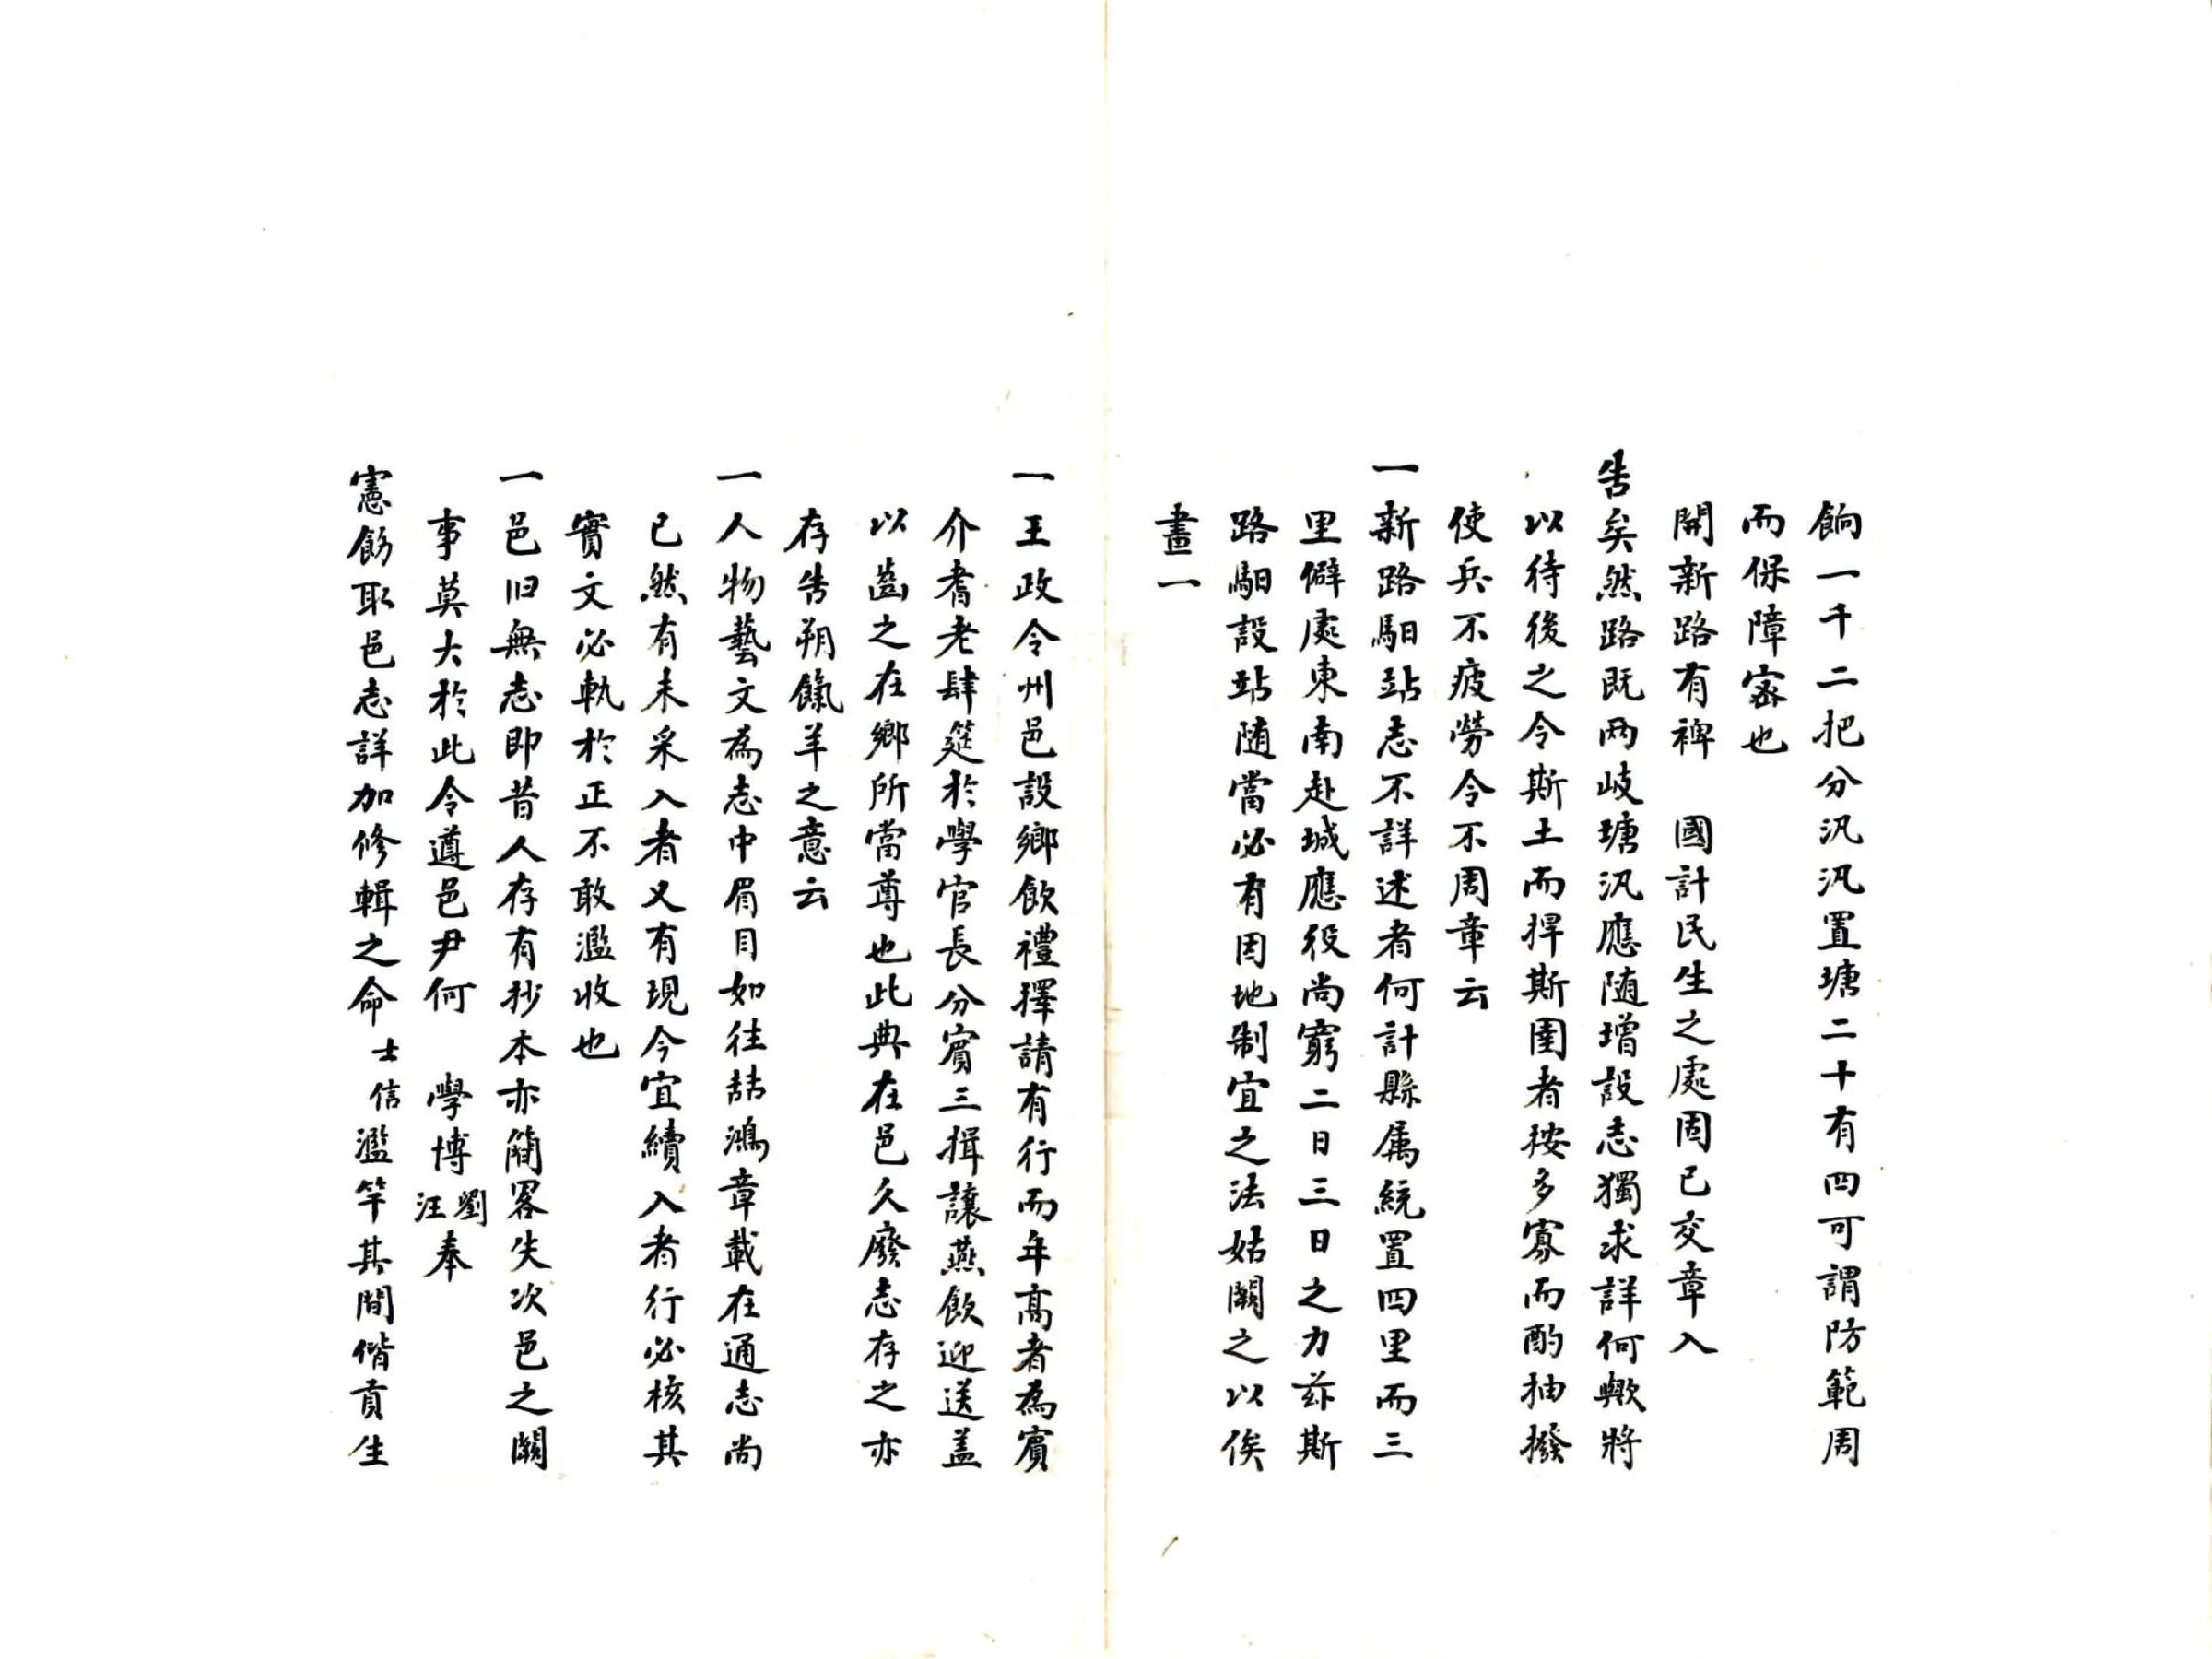 餉一千二把分汛汛置塘二十有四可謂防範周
而保障宻也
開新路有裨　國計民生之處固已交章入
告矣然路既两岐塘汛應随增設志獨求詳何歟將
以待後之令斯土而捍斯圉者按多寡而酌抽撥
使兵不疲勞令不周章云
一新路馹站志不詳述者何計縣属統置四里而三
里僻處東南赴城應役尚窮二日三日之力茲斯
路馹設站随當必有因地制宜之法姑闕之以俟
畫一
一王政令州邑設鄉飲禮擇請有行而年髙者為賔
介耆老肆筵於學官長分賔三揖讓燕飲迎送盖
以齒之在鄉所當尊也此典在邑久廢志存之亦
存告朔餼羊之意云
一人物藝文為志中眉目如往喆鴻章載在通志尚
已然有未采入者又有現今宜續入者行必核其
實文必軌於正不敢濫收也
一邑旧無志即昔人存有抄本亦簡畧失次邑之闕
事莫大於此今遵邑尹何　學博劉汪奉
憲飭取邑志詳加修輯之命士信濫竽其間偕貢生